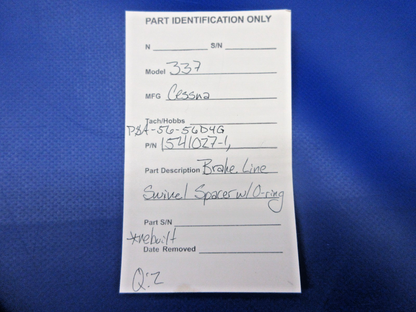 PART IDENTIFICATION ONLY
N S/N
Model 337
MFG Cessna
Tach/Hobbs
P&A-56-56D4G
P/N 1541027-1,
Part Description Brake Line
Swivel Spacer w/ O-ring
Part S/N
*rebuilt
Date Removed
Q:2